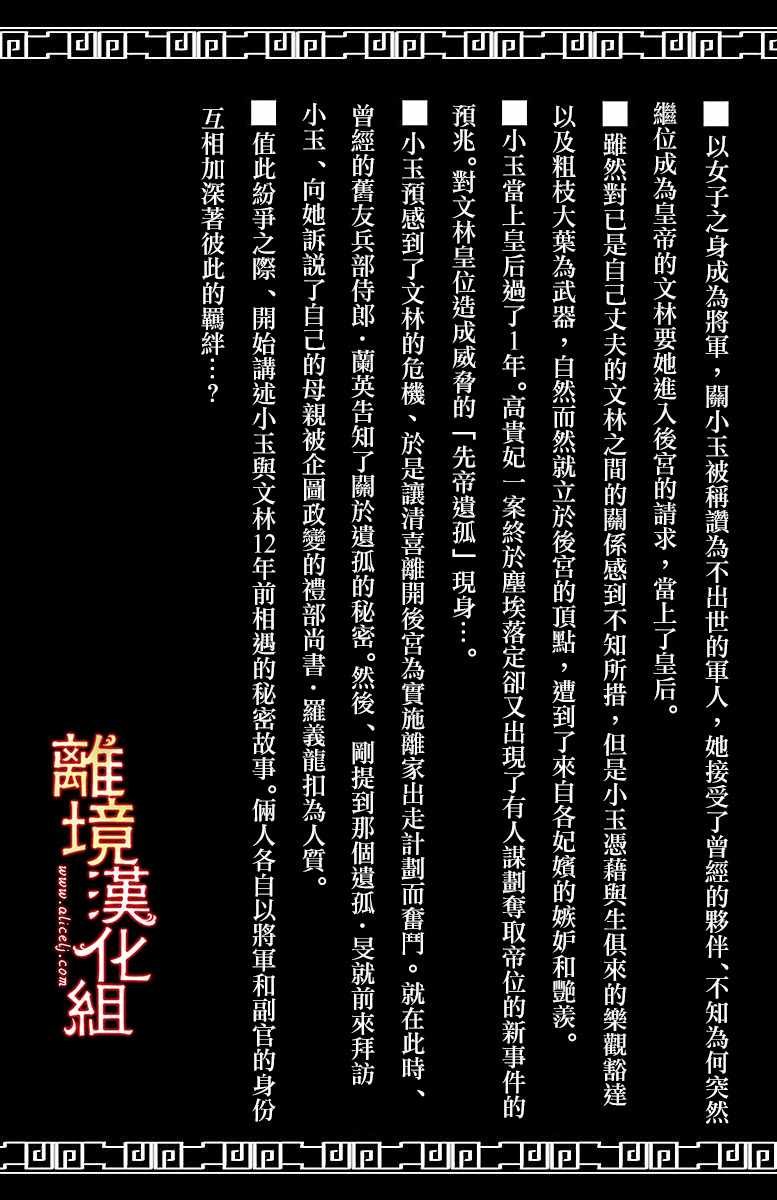 ■以女子之身成為將軍，關小玉被稱讚為不出世的軍人，她接受了曾經的夥伴、不知為何突然
繼位成為皇帝的文林要她進入後宮的請求，當上了皇后。
■雖然對已是自己丈夫的文林之間的關係感到不知所措，但是小玉憑藉與生俱來的樂觀豁達
以及粗枝大葉為武器，自然而然就立於後宮的頂點，遭到了來自各妃嬪的嫉妒和艷羨。
■小玉當上皇后過了1年。高貴妃一案終於塵埃落定卻又出現了有人謀劃奪取帝位的新事件的
預兆。對文林皇位造成威脅的「先帝遺孤」現身…。
■小玉預感到了文林的危機、於是讓清喜離開後宮為實施離家出走計劃而奮鬥。就在此時、
曾經的舊友兵部侍郎．蘭英告知了關於遺孤的秘密。然後、剛提到那個遺孤．旻就前來拜訪
小玉、向她訴說了自己的母親被企圖政變的禮部尚書．羅義龍扣為人質。
■值此紛爭之際、開始講述小玉與文林12年前相遇的秘密故事。倆人各自以將軍和副官的身份
互相加深著彼此的羈絆…?
離境漢化組
www.alicelj.com